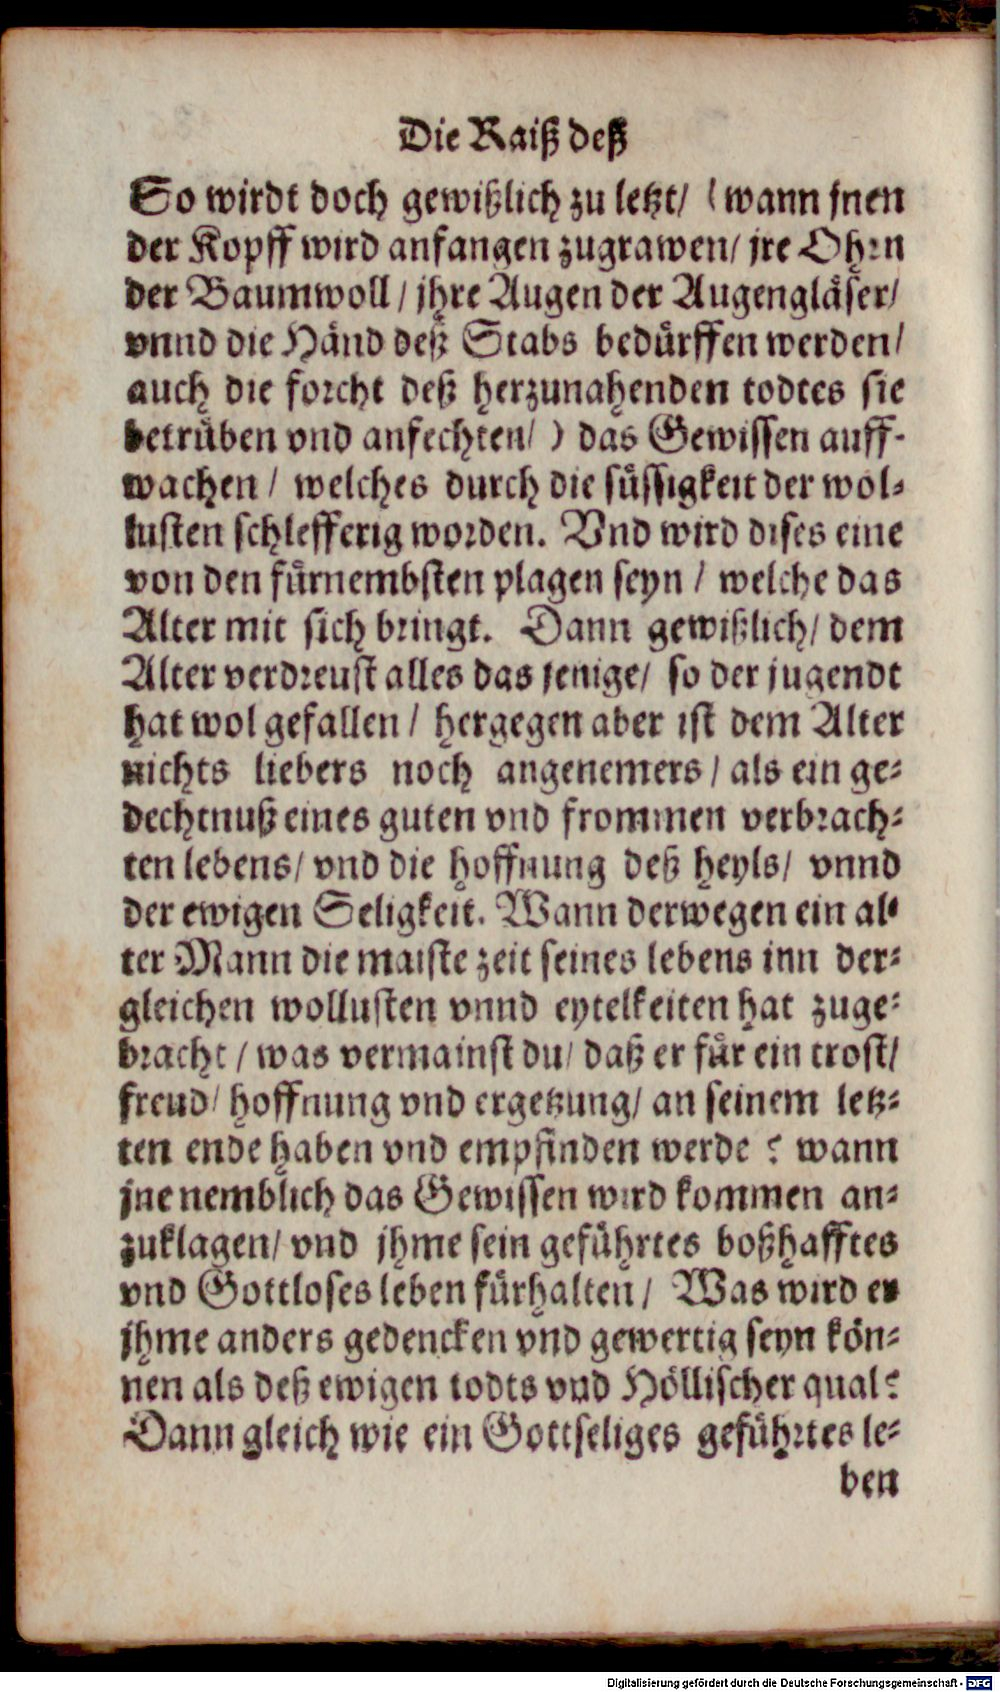 Die Raiß deß
So wirdt doch gewißlich zu letzt/ (wann jnen
der Kopff wird anfangen zugrawen/ jre Ohrn
der Baumwoll/ jhre Augen der Augengläser/
vnnd die Händ deß Stabs bedürffen werden/
auch die forcht deß herzunahenden todtes sie
betrüben vnd anfechten/) das Gewissen auff-
wachen/ welches durch die süssigkeit der wol-
lusten schlefferig worden. Vnd wird dises eine
von den fürnembsten plagen seyn/ welche das
Alter mit sich bringt. Dann gewißlich/ dem
Alter verdreust alles das jenige/ so der jugendt
hat wol gefallen/ hergegen aber ist dem Alter
nichts liebers noch angenemers/ als ein ge-
dechtnuß eines guten vnd frommen verbrach-
ten lebens/ vnd die hoffnung deß heyls/ vnnd
der ewigen Seligkeit. Wann derwegen ein al-
ter Mann die maiste zeit seines lebens inn der-
gleichen wollusten vnnd eytelkeiten hat zuge-
bracht/ was vermainst du/ daß er für ein trost/
freud/ hoffnung vnd ergetzung/ an seinem letz-
ten ende haben vnd empfinden werde? wann
jne nemblich das Gewissen wird kommen an-
zuklagen/ vnd jhme sein geführtes boßhafftes
vnd Gottloses leben fürhalten/ Was wird er
jhme anders gedencken vnd gewertig seyn kön-
nen als deß ewigen todts vnd Höllischer qual?
Dann gleich wie ein Gottseliges geführtes le-
ben
Digitalisierung gefördert durch die Deutsche Forschungsgemeinschaft - DFG